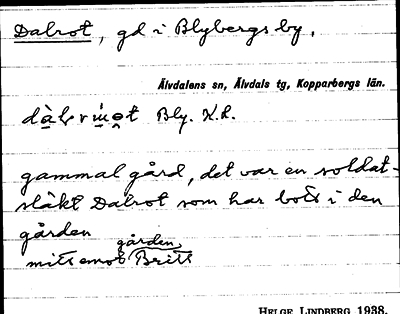 Dalrot, gd i Blybergs by.
Älvdalens sn, Älvdals tg, Kopparbergs län.
Bly. K.L.
gammal gård, det var en soldat-
släkt Dalrot som har bott i den
gården
gården
mitt emot Britt
HELGE LINDBERG 1938.